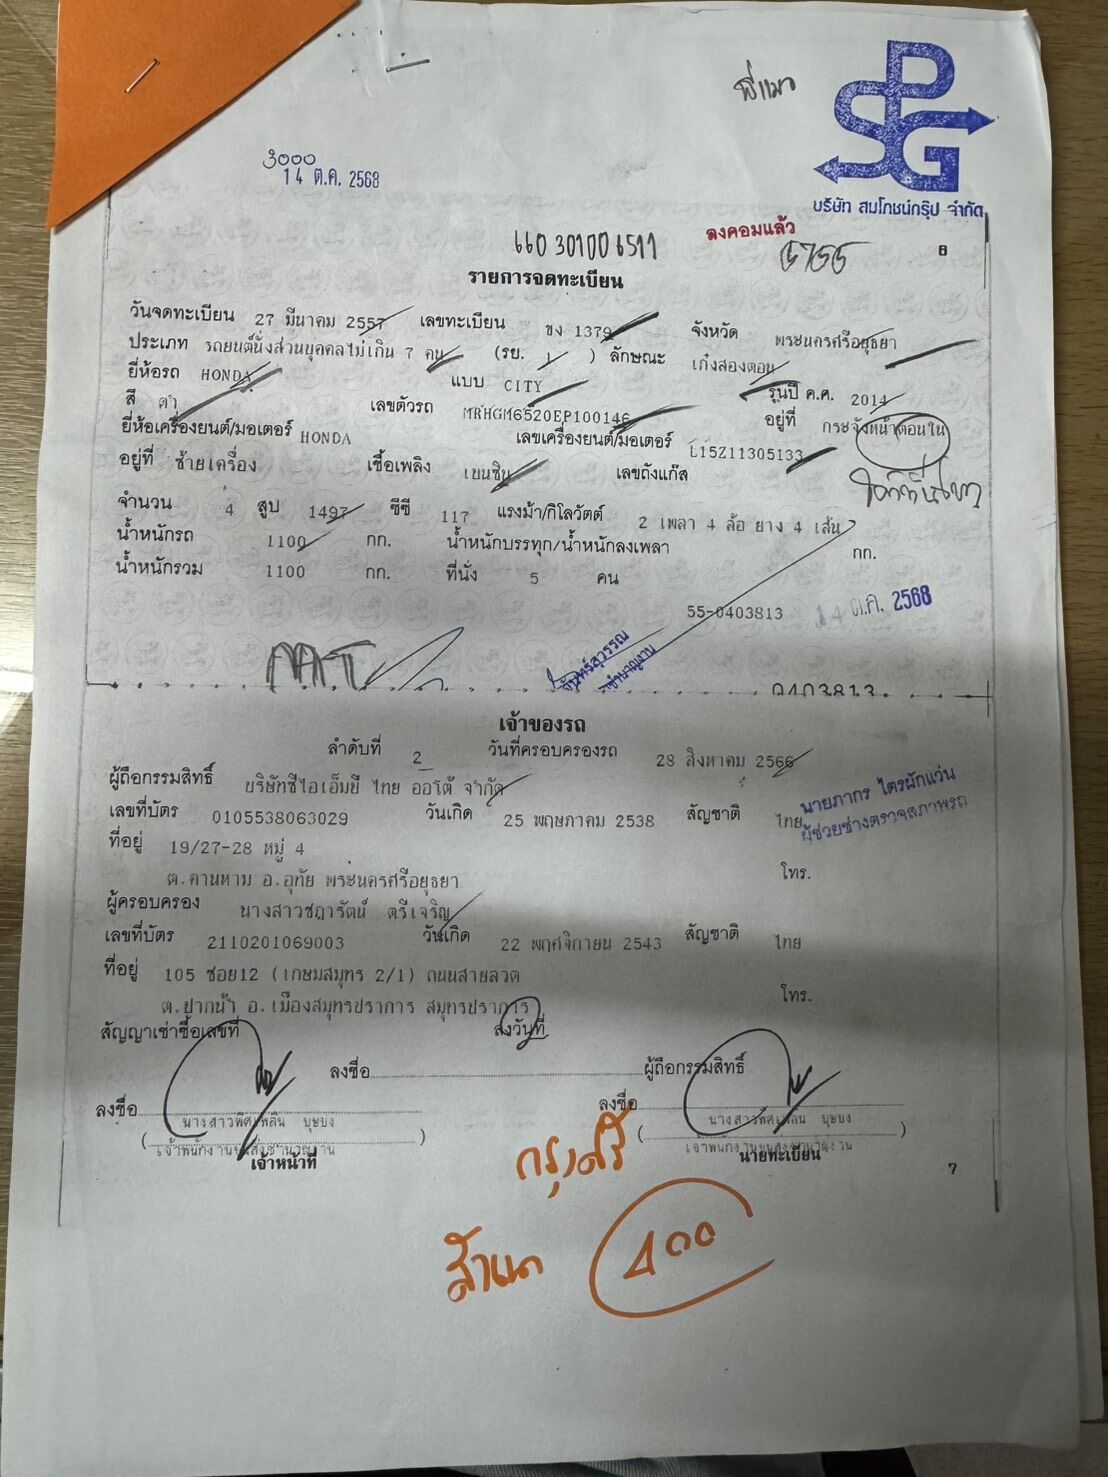 พี่แมว
SPG
บริษัท สมโภชน์กรุ๊ป จำกัด
3000
14 ต.ค. 2568
ลงคอมแล้ว
660301006511
5755
6
รายการจดทะเบียน
วันจดทะเบียน 27 มีนาคม 2557 เลขทะเบียน ขง 1379 จังหวัด พระนครศรีอยุธยา
ประเภท รถยนต์นั่งส่วนบุคคลไม่เกิน 7 คน (รย. 1 ) ลักษณะ เก๋งสองตอน
ยี่ห้อรถ HONDA แบบ CITY รุ่นปี ค.ศ. 2014
สี ดำ เลขตัวรถ MRHGM6520EP100146 อยู่ที่ กระจังหน้าตอนใน
ยี่ห้อเครื่องยนต์/มอเตอร์ HONDA เลขเครื่องยนต์/มอเตอร์ L15Z11305133
อยู่ที่ ซ้ายเครื่อง เชื้อเพลิง เบนซิน เลขถังแก๊ส
จำนวน 4 สูบ 1497 ซีซี 117 แรงม้า/กิโลวัตต์ 2 เพลา 4 ล้อ ยาง 4 เส้น
น้ำหนักรถ 1100 กก. น้ำหนักบรรทุก/น้ำหนักลงเพลา กก.
น้ำหนักรวม 1100 กก. ที่นั่ง 5 คน
55-0403813 14 ต.ค. 2568
จันทร์สุวรรณ
ชำนาญงาน
0403813
เจ้าของรถ
ลำดับที่ 2 วันที่ครอบครองรถ 28 สิงหาคม 2566
ผู้ถือกรรมสิทธิ์ บริษัทซีไอเอ็มบี ไทย ออโต้ จำกัด
เลขที่บัตร 0105538063029 วันเกิด 25 พฤษภาคม 2538 สัญชาติ ไทย
นายภากร ไตรผักแว่น
ผู้ช่วยช่างตรวจสภาพรถ
ที่อยู่ 19/27-28 หมู่ 4
ต.คานหาม อ.อุทัย พระนครศรีอยุธยา โทร.
ผู้ครอบครอง นางสาวชฎารัตน์ ตรีเจริญ
เลขที่บัตร 2110201069003 วันเกิด 22 พฤศจิกายน 2543 สัญชาติ ไทย
ที่อยู่ 105 ซอย12 (เกษมสมุทร 2/1) ถนนสายลวด
ต.ปากน้ำ อ.เมืองสมุทรปราการ สมุทรปราการ โทร.
สัญญาเช่าซื้อเลขที่ ลงวันที่
ลงชื่อ ผู้ถือกรรมสิทธิ์
ลงชื่อ ลงชื่อ
นางสาวพิศเพลิน บุษบง นางสาวพิศเพลิน บุษบง
(เจ้าพนักงานขนส่งชำนาญงาน) (เจ้าพนักงานขนส่งชำนาญงาน)
เจ้าหน้าที่ นายทะเบียน
7
กรุงศรี
สำเนา 400